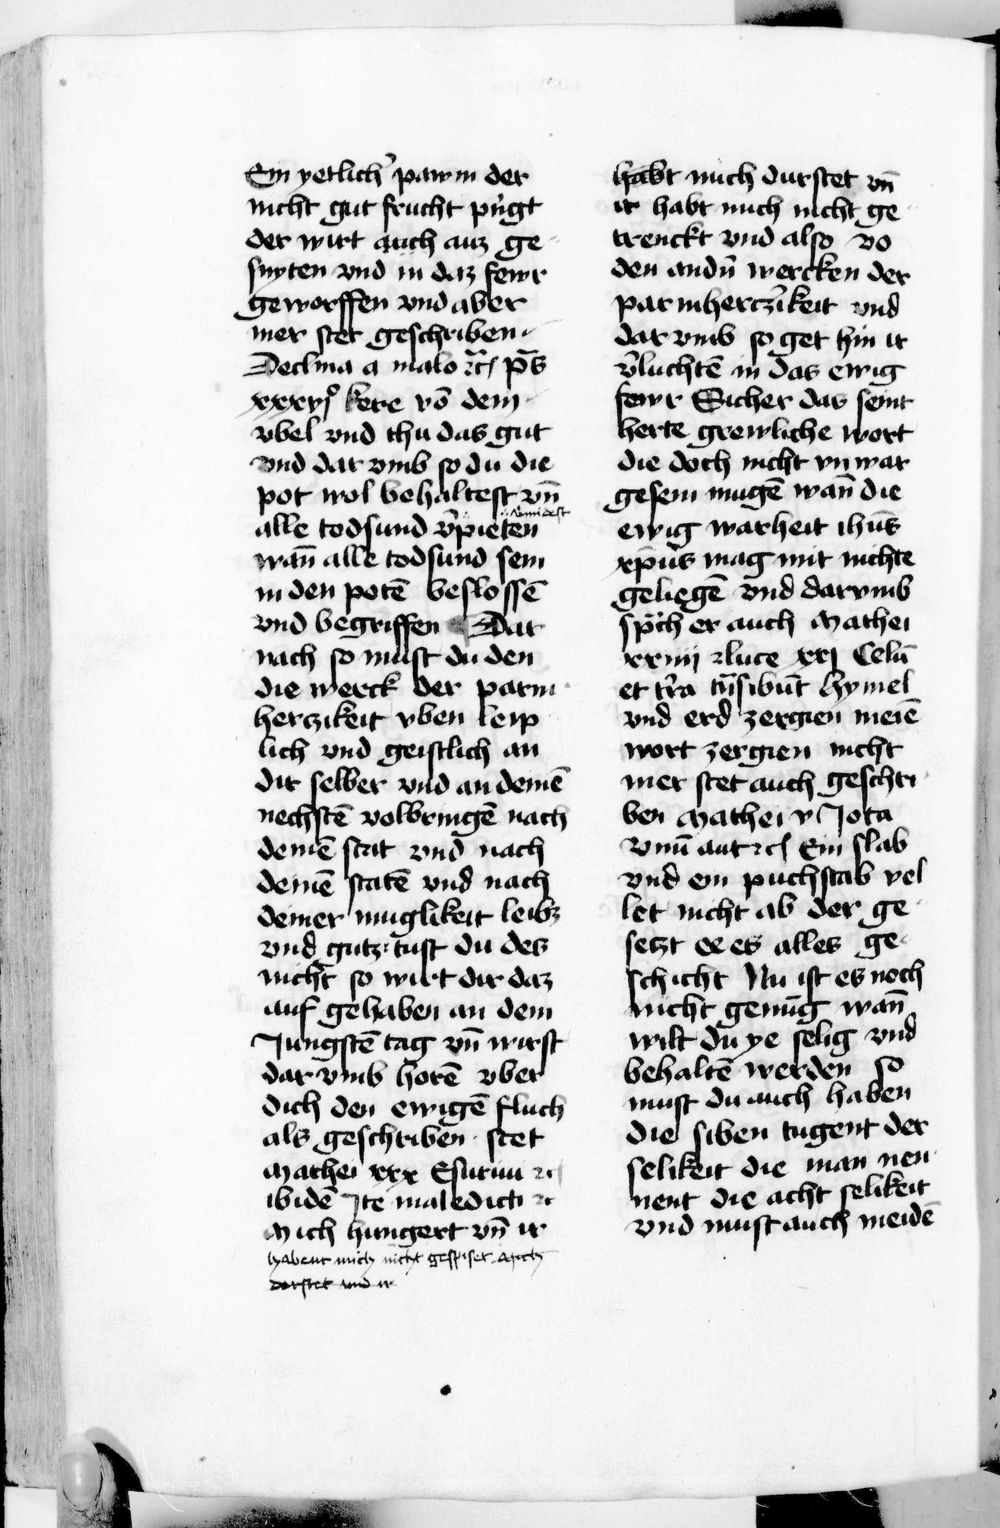 Ein yetlich' pawm der
nicht gut frucht pr̄ngt
der wirt auch auz ge
snyten vnd in daz fewr
geworffen vnd aber
mer stet geschriben
Declina a malo ꝛc̄ ps̄
xxxvj kere vō dem
vbel vnd thu das gut
vnd dar vmb so du die
pot wol behaltest vn̄
alle todsund v'pieten
wan̄ alle todsund sein
in den potē beslossē
vnd begriffen Dar
nach so must du den
die werck der parm
herczikeit vben leip
lich vnd geistlich an
dir selber vnd an deinē
nechstē volbringē nach
deinē stat vnd nach
deinē statē vnd nach
deiner muglikeit leibz
vnd gutz tust du des
nicht so wirt dir daz
auf gehaben an dem
Jungstē tag vn̄ wirst
dar vmb horē vber
dich den ewigē fluch
als geschriben stet
Mathei xxv Esuriui ꝛc
ibidē Ite maledicti ꝛc
Mich hungert vn̄ ir
habent mich nicht gespiset Mich
dorstet vnd ir
habt mich durstet vn̄
ir habt mich nicht ge
trenckt vnd also vo
den andn̄ wercken der
parmhercz'ikeit vnd
dar vmb so get hin ir
v'luchtē in das ewig
fewr Sicher das seint
herte grewliche wort
die doch nicht vnwar
gesein mugē wan̄ die
ewig warheit ihūs
xp̄us mag mit nichte
geliegē vnd darvmb
sp'ch er auch Mathei
xxiiij ꝛ luce xxj Celū
et t'ra trn̄sibūt Hymel
vnd erd zergien meiē
wort zergien nicht
mer stet auch geschri
ben Mathei v Jota
vnū aut ꝛc Ein slab
vnd ein puchstab vel
let nicht ab der ge
setzt ee es alles ge
schicht Nu ist es noch
nicht genūg wan̄
wilt du ye selig vnd
behaltē werden so
must du auch haben
die siben tugent der
selikeit die man nen
nent die acht selikeit
vnd must auch meidē